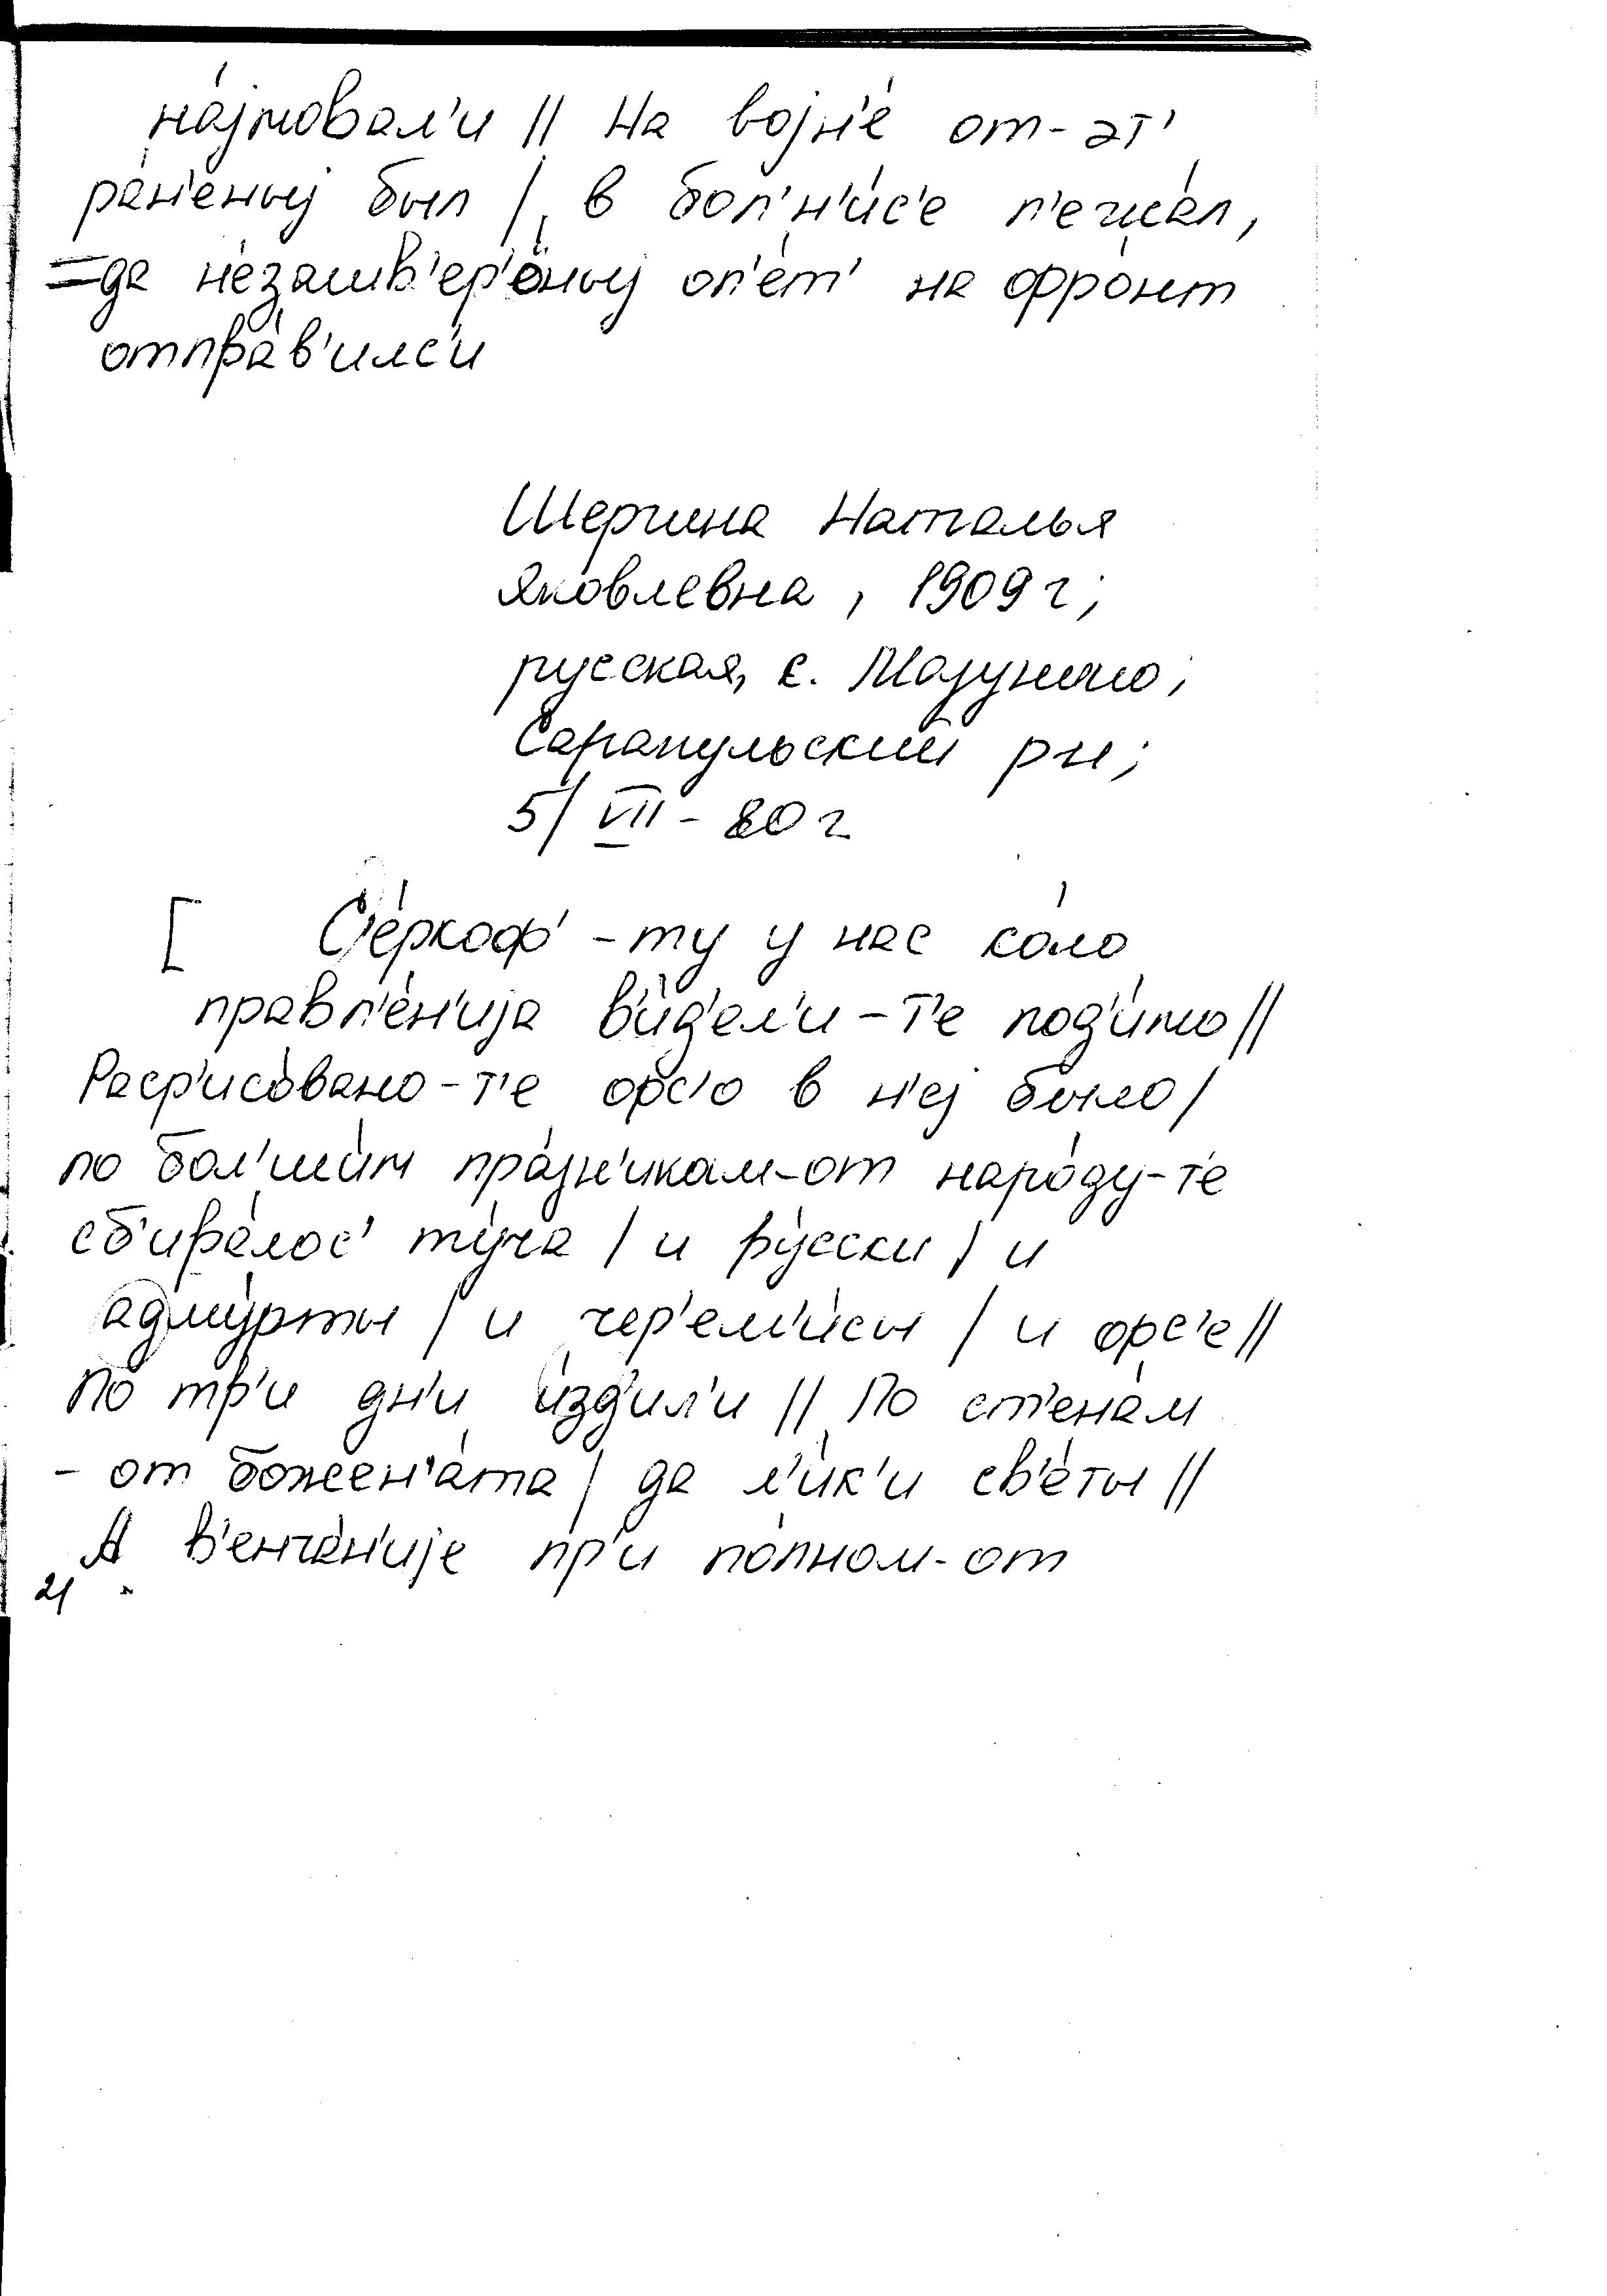 на́јмовал'и || На војн'е́ от-эт'
ра́н'еныј был |, в бол'н'и́с'е л'ежа́л,
=да незашв'ер'о́ныј оп'е́т' на фро́нт
отпра́в'илс'и
Шергина Наталья
Яковлевна, 1909 г;
русская, с. Мазунино;
Сарапульский рн;
5/VII - 80 г
[ С'е́ркоф' -ту у нас ко́ло
правл'е́н'ија в'и́д'ел'и -т'е под'и́мо ||
Раср'исо́вано-т'е орс'о в н'еј было |
по бол'ши́м пра́зн'икам-от наро́ду-т'е
сб'ира́лос' ту́ча | и ру́сски | и
адму́рты | и чер'ем'и́сы | и орс'е ||
По тр'и дн'и и́зд'ил'и || По ст'ена́м
- от божен'а́та | да л'и́к'и св'е́ты ||
А в'енча́н'ије пр'и по́лном-от
21